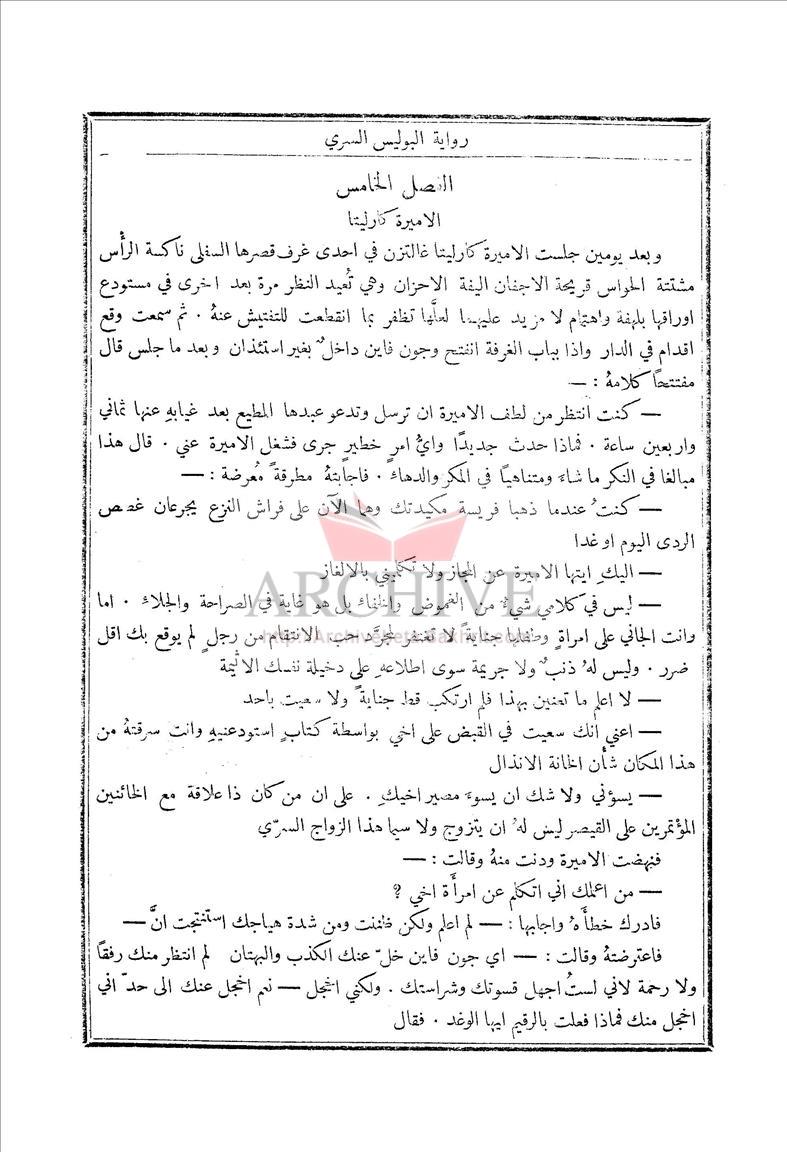 رواية البوليس السري
الفصل الخامس
الاميرة كارليتا
وبعد يومين جلست الاميرة كارليتا غالتزن في احدى غرف قصرها السفلى ناكسة الرأس
مشتتة الحواس قريحة الاجفان اليفة الاحزان وهي تُعيد النظر مرة بعد اخرى في مستودع
اوراقها بلهفة واهتمام لا مزيد عليهما لعلَّها تظفر بما انقطعت للتفتيش عنهُ . ثم سمعت وقع
اقدام في الدار واذا بباب الغرفة انفتح وجون فاين داخلٌ بغير استئذان وبعد ما جلس قال
مفتتحاً كلامهُ : —
— كنت انتظر من لطف الاميرة ان ترسل وتدعو عبدها المطيع بعد غيابهِ عنها ثماني
واربعين ساعة . فماذا حدث جديدًا وايُّ امرٍ خطيرٍ جرى فشغل الاميرة عني . قال هذا
مبالغا في النكر ما شاء ومتناهيًا في المكر والدهاء . فاجابتهُ مطرقةً مُعرضة : —
— كنتُ عندما ذهبا فريسة مكيدتك وهما الآن على فراش النزع يجرعان غصص
الردى اليوم او غدا
— اليكِ ايتها الاميرة عن المجاز ولا تكلميني بالالغاز
ARCHIVE
— ليس في كلامي شيءٌ من الغموض والخفاء بل هو غاية في الصراحة والجلاء . اما
وانت الجاني على امرأةٍ وطفلها جنايةً لا تغتفر لمجرَّد حب الانتقام من رجلٍ لم يوقع بك اقل
ضرر . وليس لهُ ذنبٌ ولا جريمة سوى اطلاعهِ على دخيلة نفسك الاثيمة
— لا اعلم ما تعنين بهذا فلم ارتكب قط جنايةً ولا سعيت باحد
— اعني انك سعيت في القبض على اخي بواسطة كتابٍ استودعنيهِ وانت سرقتهُ من
هذا المكان شأن الخانة الانذال
— يسؤني ولا شك ان يسوءَ مصير اخيكِ . على ان من كان ذا علاقة مع الخائنين
المؤتمرين على القيصر ليس لهُ ان يتزوج ولا سيما هذا الزواج السرّي
فنهضت الاميرة ودنت منهُ وقالت : —
— من اعلمك اني اتكلم عن امرأة اخي ?
فادرك خطأَهُ واجابها : — لم اعلم ولكن ظننت ومن شدة هياجك استنتجت انَّ —
فاعترضتهُ وقالت : — اي جون فاين خلّ عنك الكذب والبهتان لم انتظر منك رفقًا
ولا رحمة لاني لستُ اجهل قسوتك وشراستك . ولكني اخجل — نعم اخجل عنك الى حدّ اني
اخجل منك فماذا فعلت بالرقيم ايها الوغد . فقال